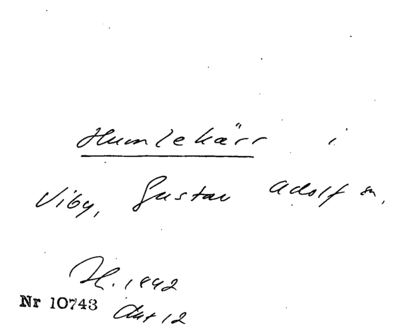 Humlekärr i
Viby, Gustav Adolf sn.
H. 1942
Nr 10743 Akt 12